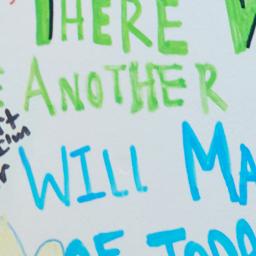 THERE
ANOTHER
WILL MA
OF TODA